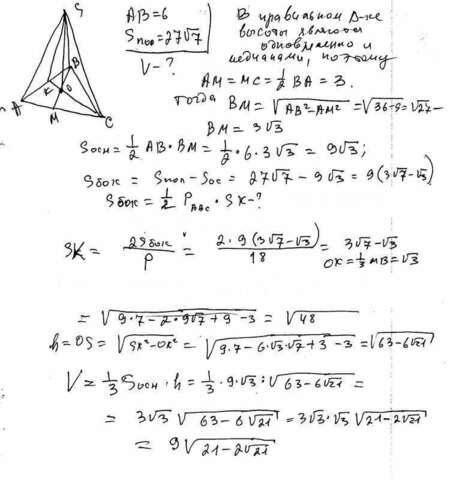 S
B
K
O
A
M
C
AB = 6
Sпов = 27√7
V - ?
В правильном Δ-ке
высоты являются
одновременно и
медианами, поэтому
AM = MC = 1/2 BA = 3.
тогда BM = √(AB² - AM²) = √(36-9) = √27 =
BM = 3√3
Sосн = 1/2 AB · BM = 1/2 · 6 · 3√3 = 9√3;
Sбок = Sпол - Sос = 27√7 - 9√3 = 9(3√7 - √3)
Sбок = 1/2 P_ABC · SK - ?
SK = 2Sбок / P = 2·9(3√7 - √3) / 18 = 3√7 - √3
OK = 1/3 MB = √3
= √(9·7 - 2·9√7 + 9 - 3) = √48
h = OS = √(SK² - OK²) = √(9·7 - 6√3√7 + 3 - 3) = √(63 - 6√21)
V = 1/3 Sосн · h = 1/3 · 9√3 · √(63 - 6√21) =
= 3√3 √(63 - 6√21) = 3√3·√3 √(21 - 2√21)
= 9√(21 - 2√21)